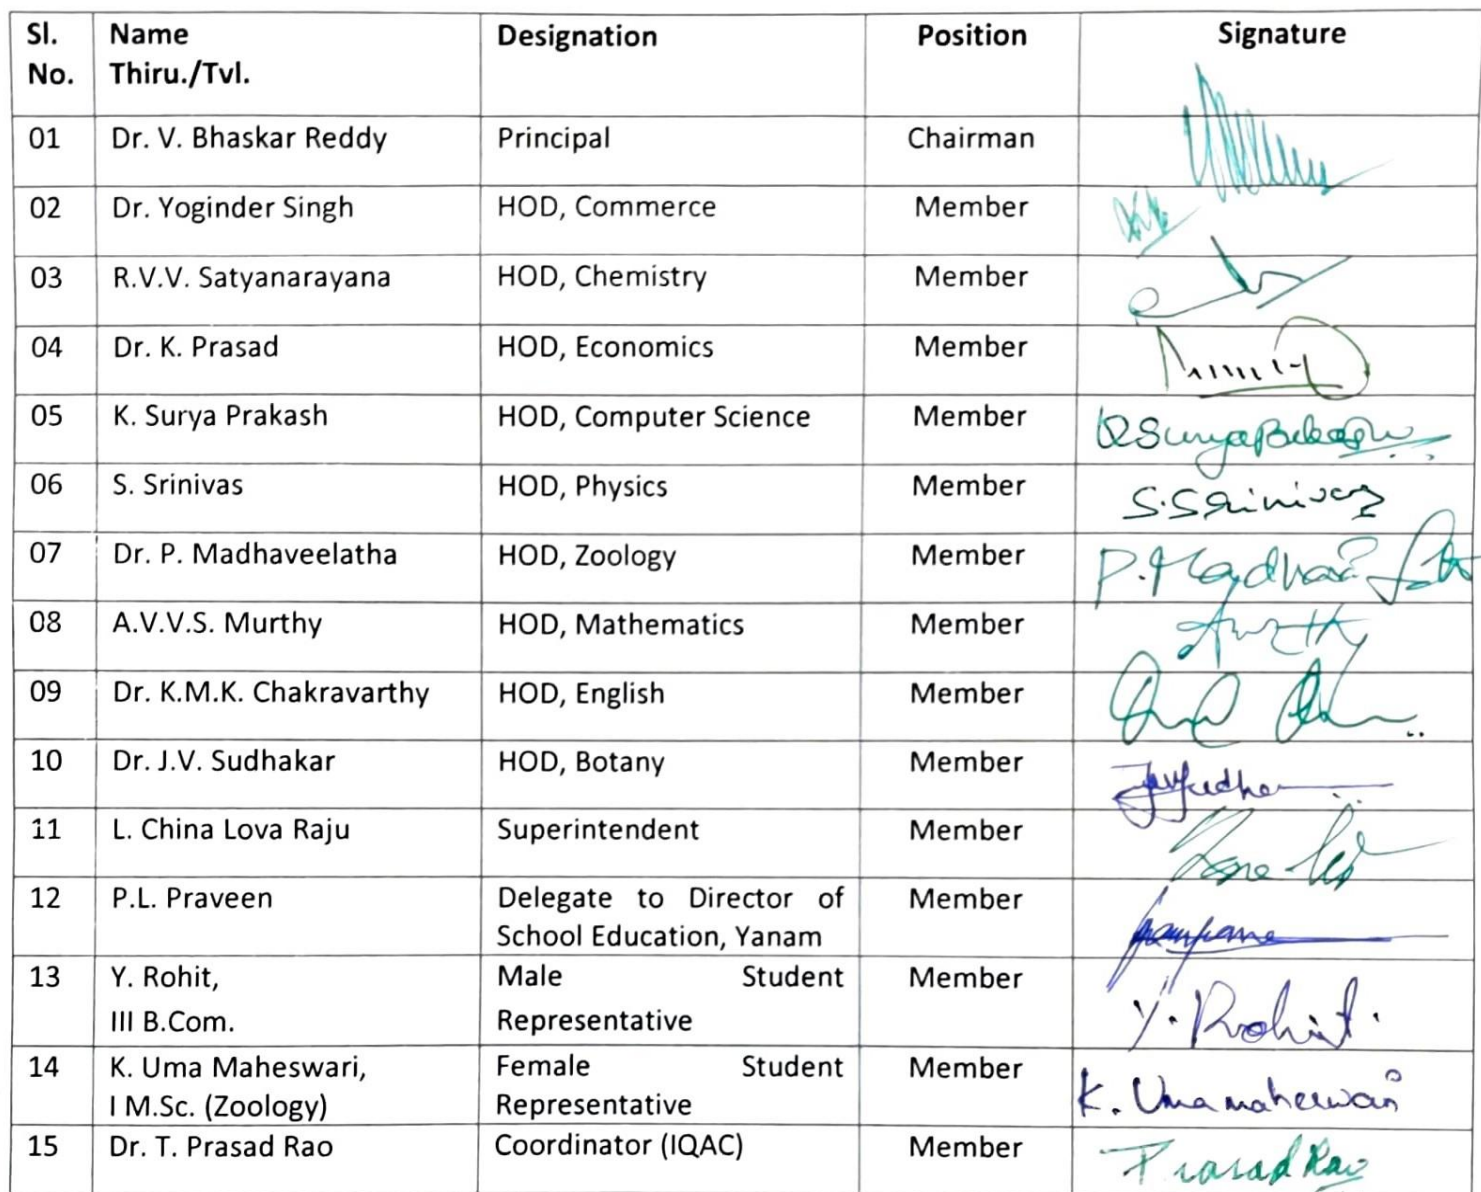 Sl. No. Name Thiru./Tvl. Designation Position Signature
01 Dr. V. Bhaskar Reddy Principal Chairman
02 Dr. Yoginder Singh HOD, Commerce Member
03 R.V.V. Satyanarayana HOD, Chemistry Member
04 Dr. K. Prasad HOD, Economics Member
05 K. Surya Prakash HOD, Computer Science Member
06 S. Srinivas HOD, Physics Member S. Srinivas
07 Dr. P. Madhaveelatha HOD, Zoology Member
08 A.V.V.S. Murthy HOD, Mathematics Member
09 Dr. K.M.K. Chakravarthy HOD, English Member
10 Dr. J.V. Sudhakar HOD, Botany Member
11 L. China Lova Raju Superintendent Member
12 P.L. Praveen Delegate to Director of Member
School Education, Yanam
13 Y. Rohit, Male Student Member Y. Rohit.
III B.Com. Representative
14 K. Uma Maheswari, Female Student Member K. Umamaheswari
I M.Sc. (Zoology) Representative
15 Dr. T. Prasad Rao Coordinator (IQAC) Member T Prasad Rao